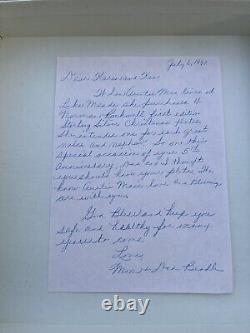 July 6, 19
Dear Karen and Ken,
When Auntie Mae lived at
Lake Meade she purchased 16
Norman Rockwell first edition
Sterling Silver Christmas Plates.
She intended one for each great
niece and nephew. So on this
special occasion of your 5th
Anniversary, Dad and I thought
you should have your plates. We
know Auntie Mae's love and blessing
are with you.
God Bless and keep you
safe and healthy for many
years to come.
Love,
Mom and Dad